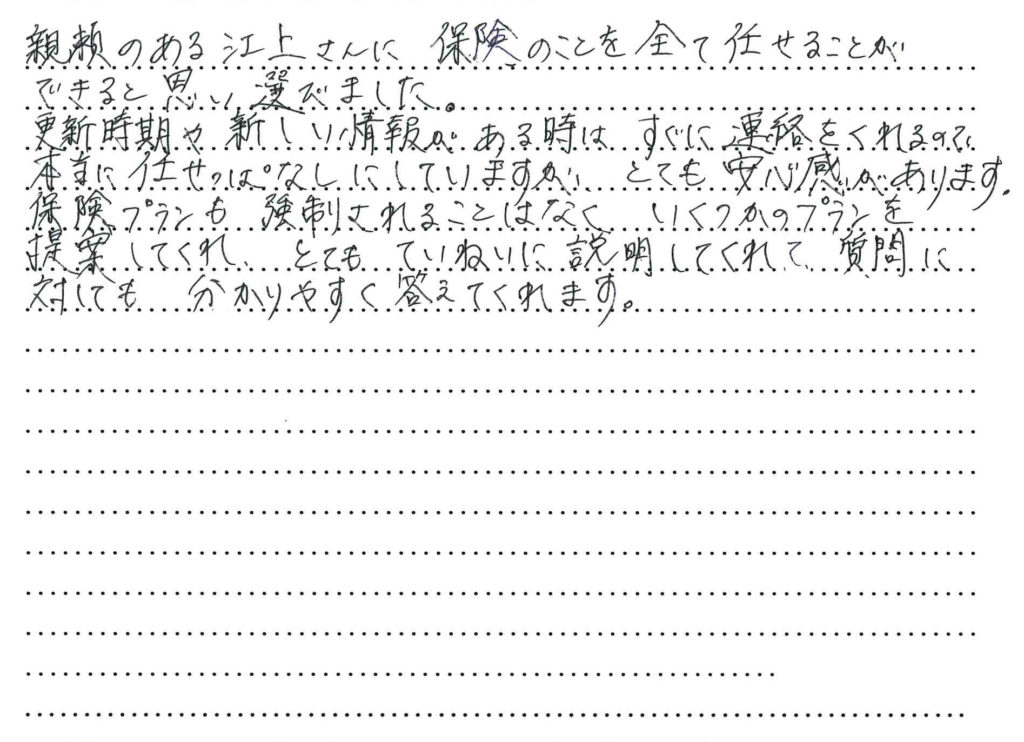 親頼のある江上さんに 保険のことを全て任せることが
できると思い選びました。
更新時期や新しい情報がある時は すぐに連絡をくれるので
本当に任せっぱなしにしていますが、とても安心感があります。
保険プランも 強制されることはなく いくつかのプランを
提案してくれ、とても ていねいに説明してくれて、質問に
対しても 分かりやすく答えてくれます。